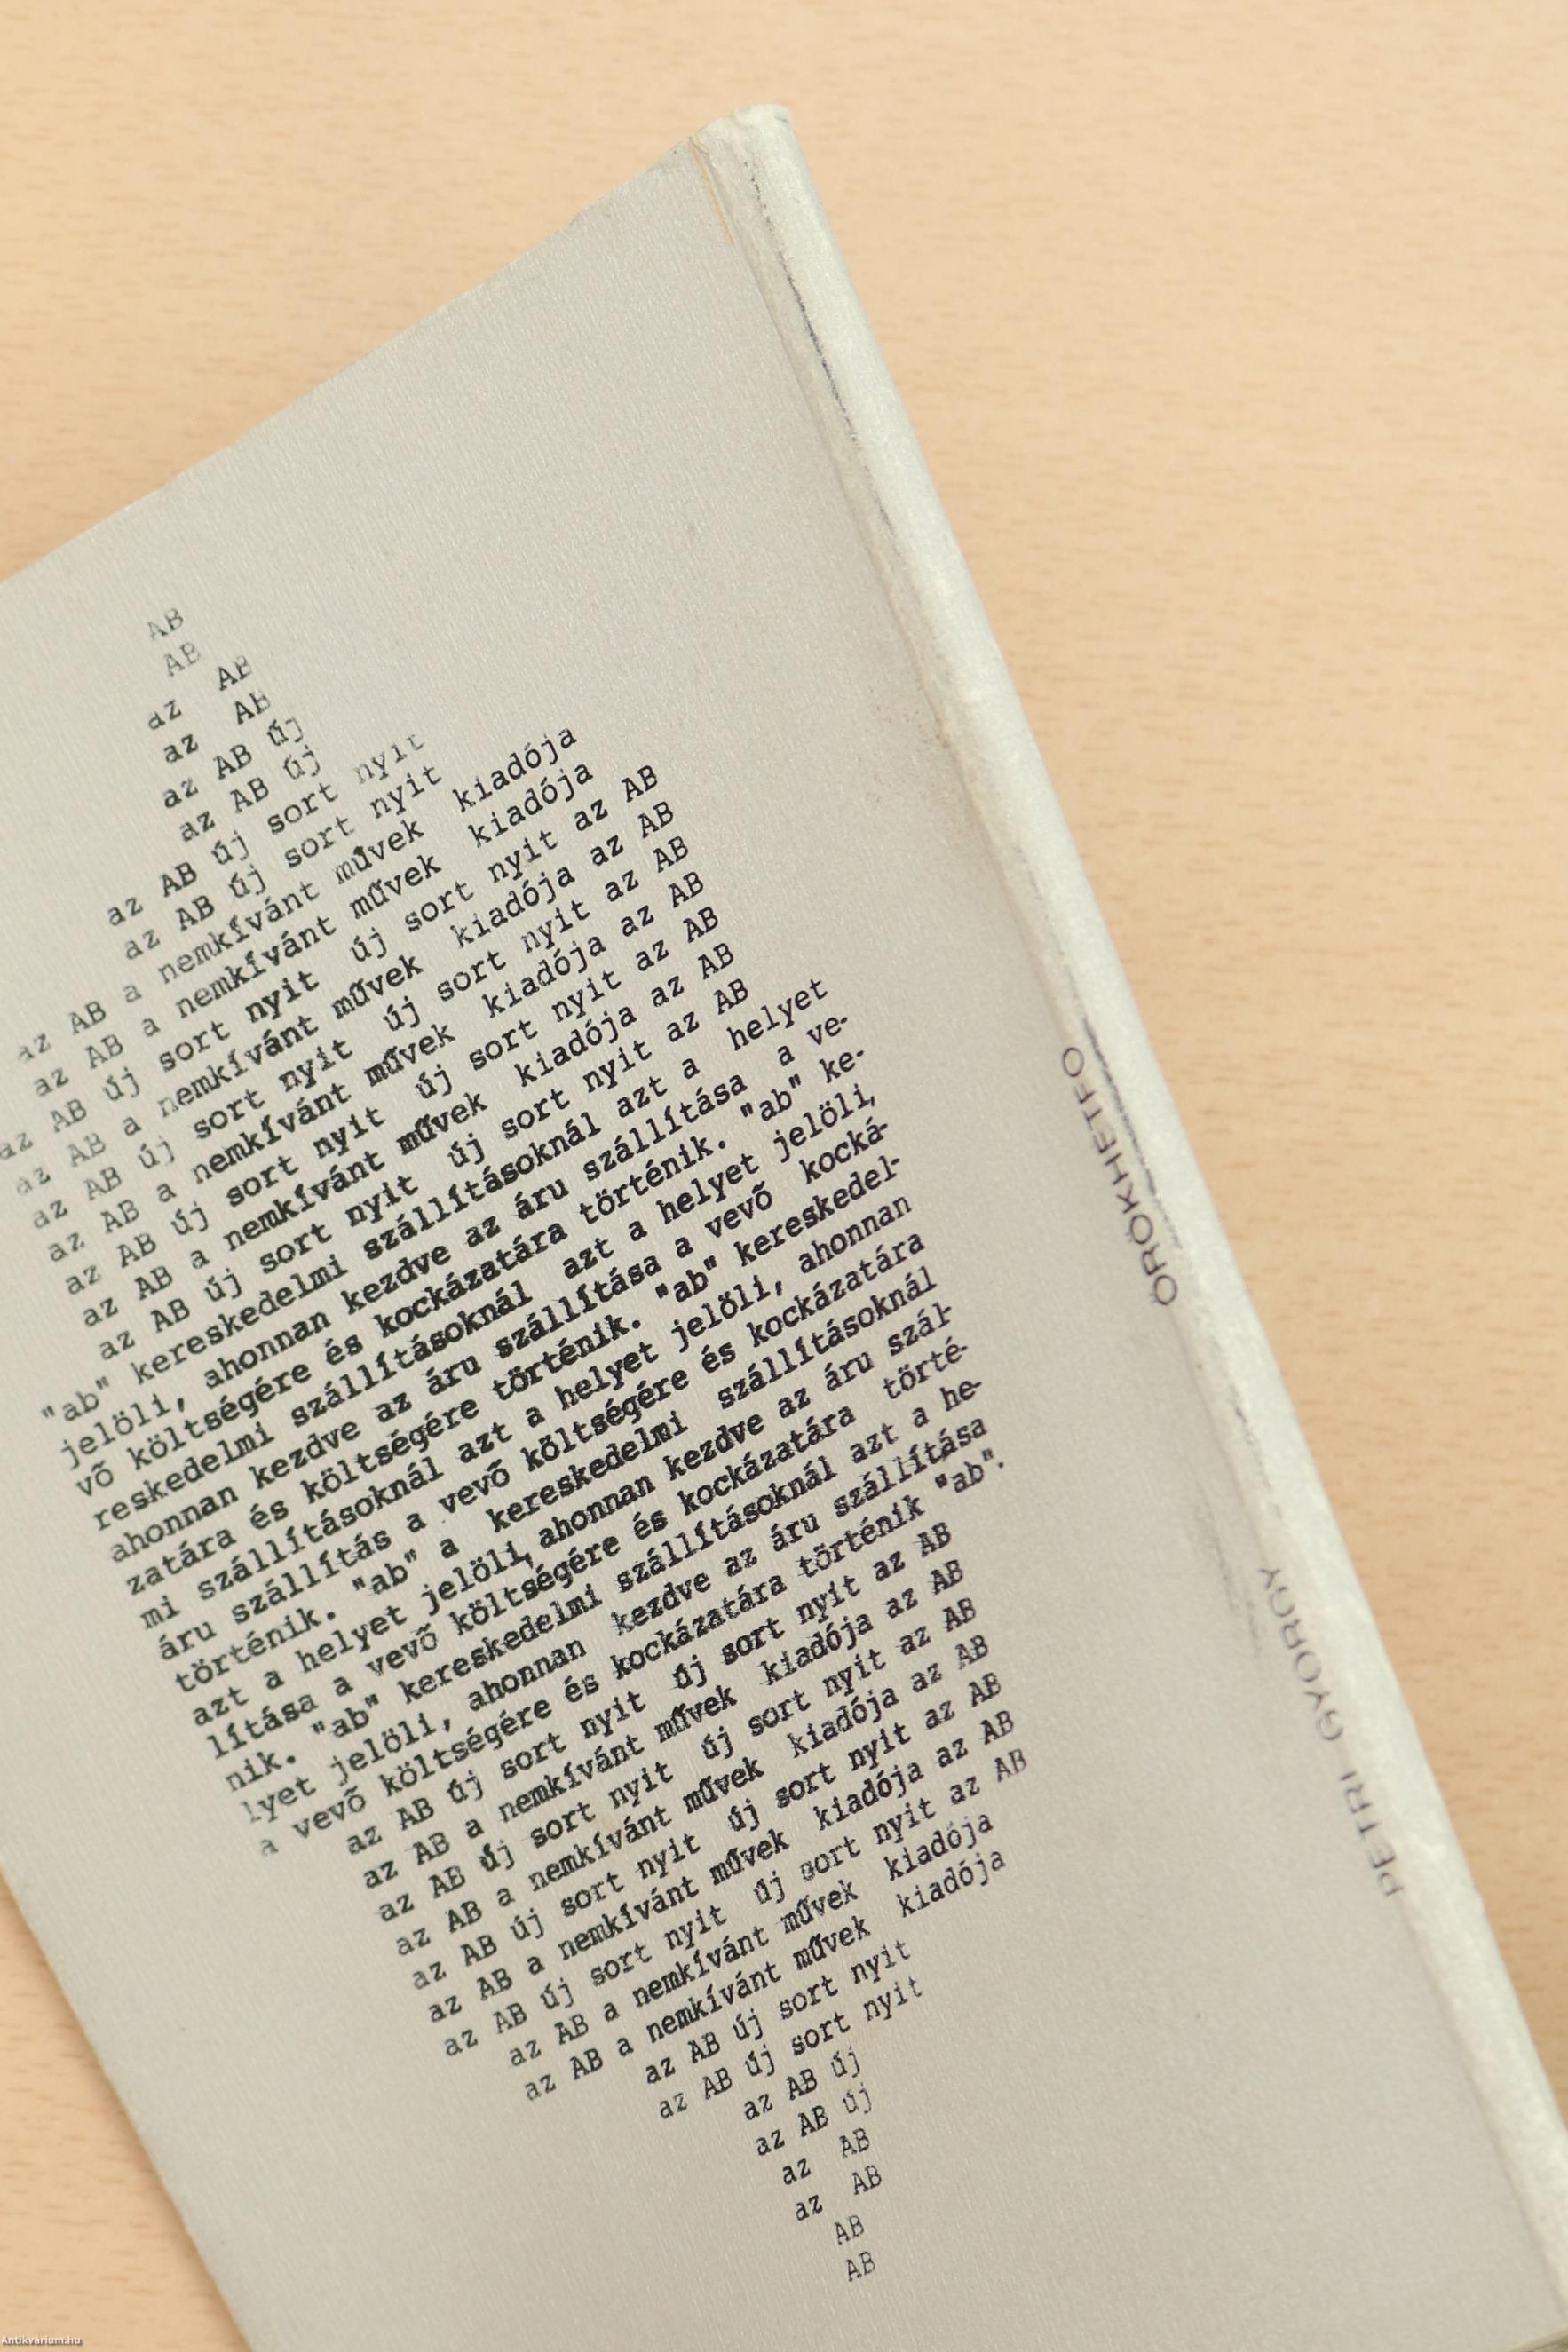 AB
AB
az AB
az AB
az AB új
az AB új
az AB új sort nyit
az AB új sort nyit
az AB a nemkívánt művek kiadója
az AB a nemkívánt művek kiadója
az AB új sort nyit új sort nyit az AB
az AB a nemkívánt művek kiadója az AB
az AB új sort nyit új sort nyit az AB
az AB a nemkívánt művek kiadója az AB
az AB új sort nyit új sort nyit az AB
az AB a nemkívánt művek kiadója az AB
az AB új sort nyit új sort nyit az AB
"ab" kereskedelmi szállításoknál azt a helyet
jelöli, ahonnan kezdve az áru szállítása a ve-
vő költségére és kockázatára történik. "ab" ke-
reskedelmi szállításoknál azt a helyet jelöli,
ahonnan kezdve az áru szállítása a vevő kocká-
zatára és költségére történik. "ab" kereskedel-
mi szállításoknál azt a helyet jelöli, ahonnan
áru szállítás a vevő költségére és kockázatára
történik. "ab" a kereskedelmi szállításoknál
azt a helyet jelöli, ahonnan kezdve az áru szál-
lítása a vevő költségére és kockázatára törté-
nik. "ab" kereskedelmi szállításoknál azt a he-
lyet jelöli, ahonnan kezdve az áru szállítása
a vevő költségére és kockázatára történik "ab".
az AB új sort nyit új sort nyit az AB
az AB a nemkívánt művek kiadója az AB
az AB új sort nyit új sort nyit az AB
az AB a nemkívánt művek kiadója az AB
az AB új sort nyit új sort nyit az AB
az AB a nemkívánt művek kiadója az AB
az AB új sort nyit új sort nyit az AB
az AB a nemkívánt művek kiadója
az AB a nemkívánt művek kiadója
az AB új sort nyit
az AB új sort nyit
az AB új
az AB új
az AB
az AB
AB
AB
PETRI GYÖRGY
ÖRÖKHÉTFŐ
Antikvárium.hu